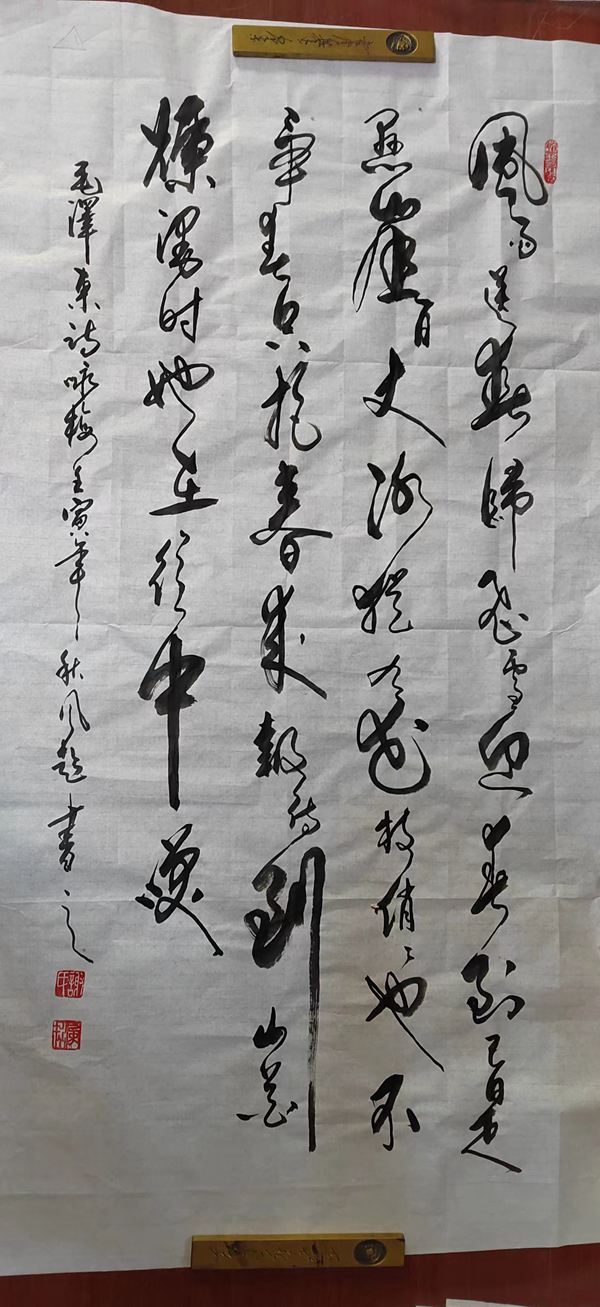 風雨送春歸飛雪迎春到已是
悬崖百丈冰犹有花枝俏〻也不
争春只把春来報待到山花
爛漫时她在丛中笑
毛澤東詩咏梅壬寅年秋风题書之
謝氏